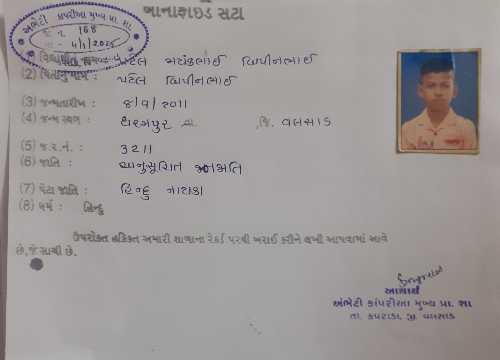 બોનાફાઇડ સર્ટી
અંભેટી કાપરીઆ મુખ્ય પ્રા. શા.
જા. નં. 168
તા. - 4/1/2025
પટેલ મયંકભાઈ વિપીનભાઈ
(2) પિતાનું નામ : પટેલ વિપીનભાઈ
(3) જન્મતારીખ : 8/9/2011
(4) જન્મ સ્થળ : ધરમપુર તા. , જિ. વલસાડ
(5) જ.ર.નં. : 3211
(6) જાતિ : અનુસૂચિત જનજાતિ
(7) પેટા જાતિ : હિન્દુ નાયકા
(8) ધર્મ : હિન્દુ
ઉપરોક્ત હકિકત અમારી શાળાના રેકર્ડ પરથી ખરાઈ કરીને લખી આપવામાં આવે
છે, જે સાચી છે.
આચાર્ય
અંભેટી કાપરીઆ મુખ્ય પ્રા. શા
તા. કપરાડા, જી. વલસાડ